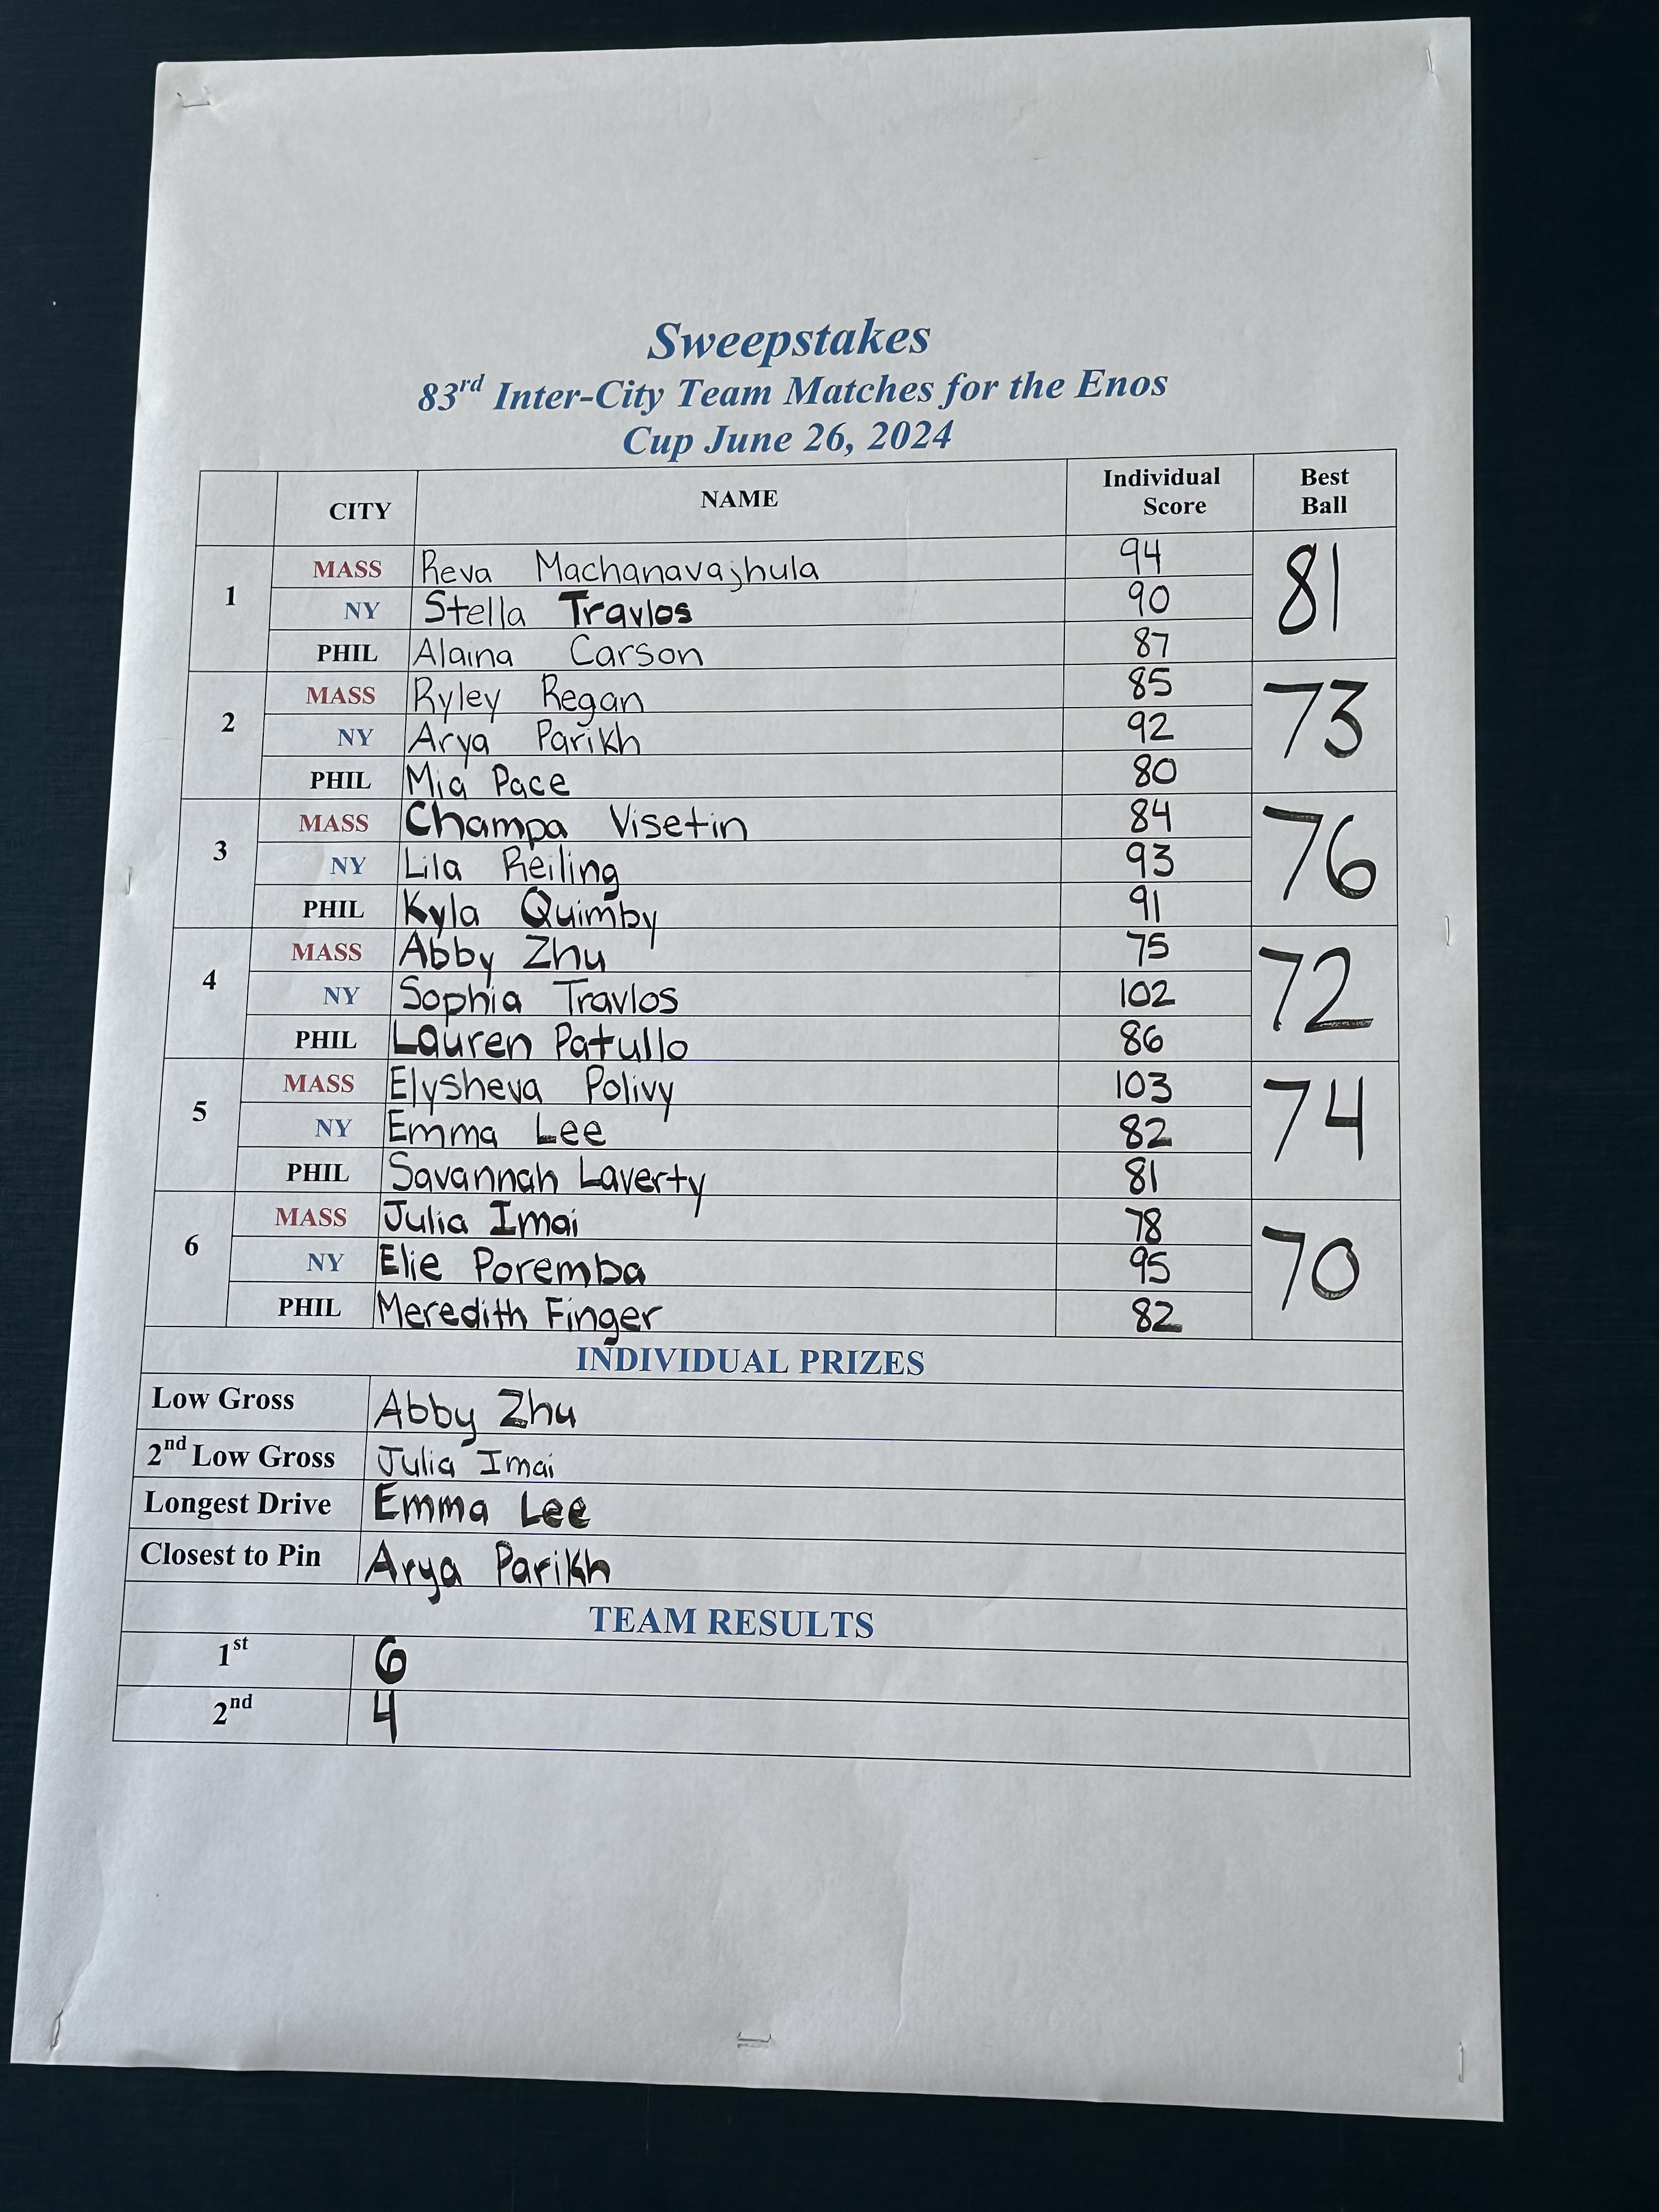 Sweepstakes
83rd Inter-City Team Matches for the Enos
Cup June 26, 2024
CITY NAME Individual Score Best Ball
1 MASS Reva Machanavajhula 94 81
NY Stella Travlos 90
PHIL Alaina Carson 87
2 MASS Ryley Regan 85 73
NY Arya Parikh 92
PHIL Mia Pace 80
3 MASS Champa Visetin 84 76
NY Lila Reiling 93
PHIL Kyla Quimby 91
4 MASS Abby Zhu 75 72
NY Sophia Travlos 102
PHIL Lauren Patullo 86
5 MASS Elysheva Polivy 103 74
NY Emma Lee 82
PHIL Savannah Laverty 81
6 MASS Julia Imai 78 70
NY Elie Poremba 95
PHIL Meredith Finger 82
INDIVIDUAL PRIZES
Low Gross Abby Zhu
2nd Low Gross Julia Imai
Longest Drive Emma Lee
Closest to Pin Arya Parikh
TEAM RESULTS
1st 6
2nd 4